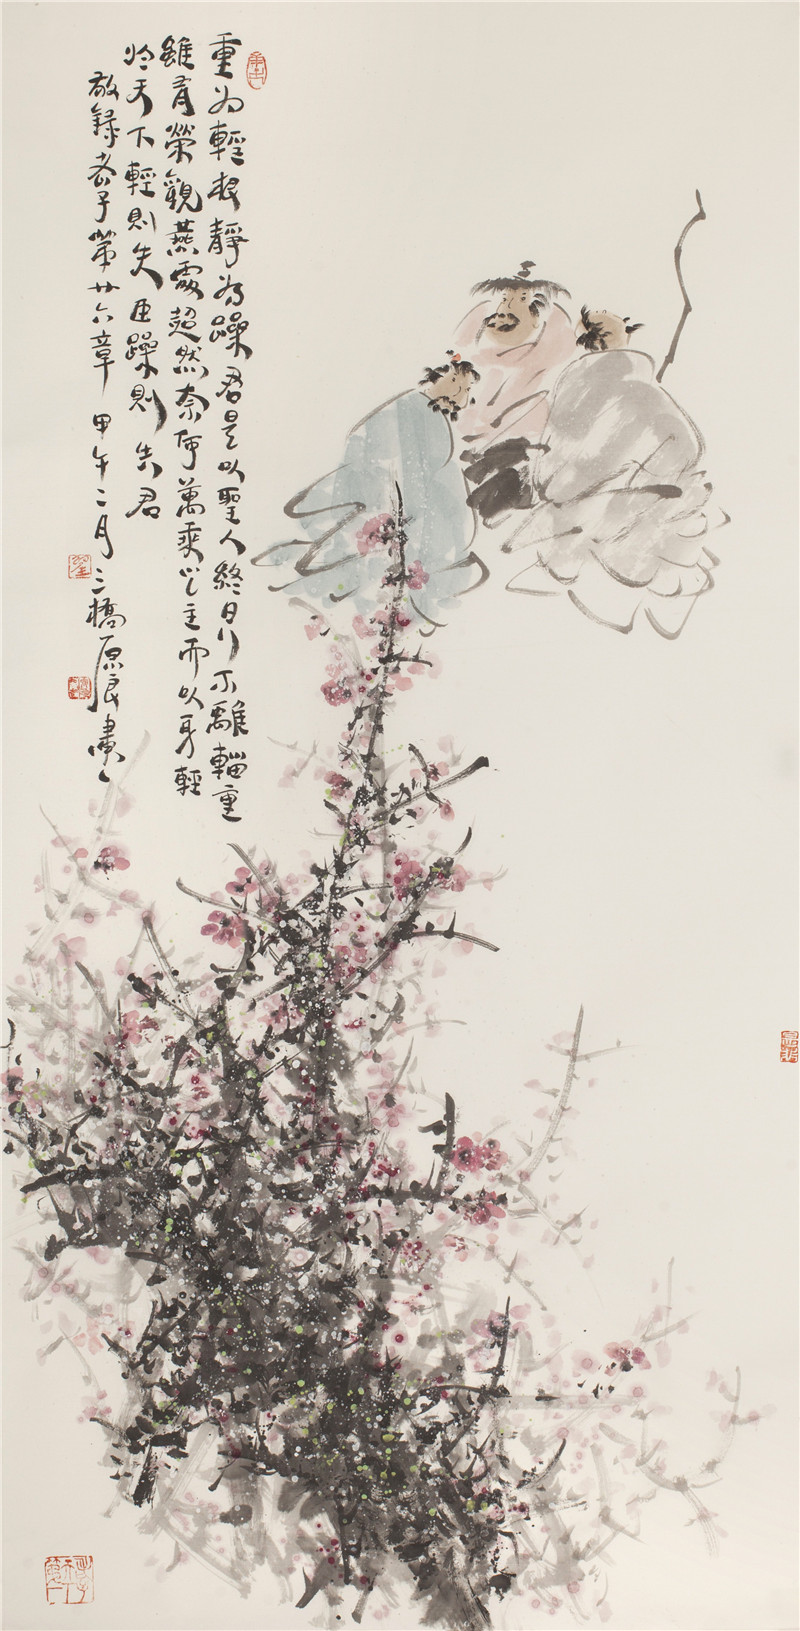 重為輕根靜為躁君是以聖人終日行不離輜重
雖有榮觀燕處超然奈何萬乘之主而以身輕
於天下輕則失臣躁則失君
敬錄老子第廿六章 甲午二月三橋原良畫